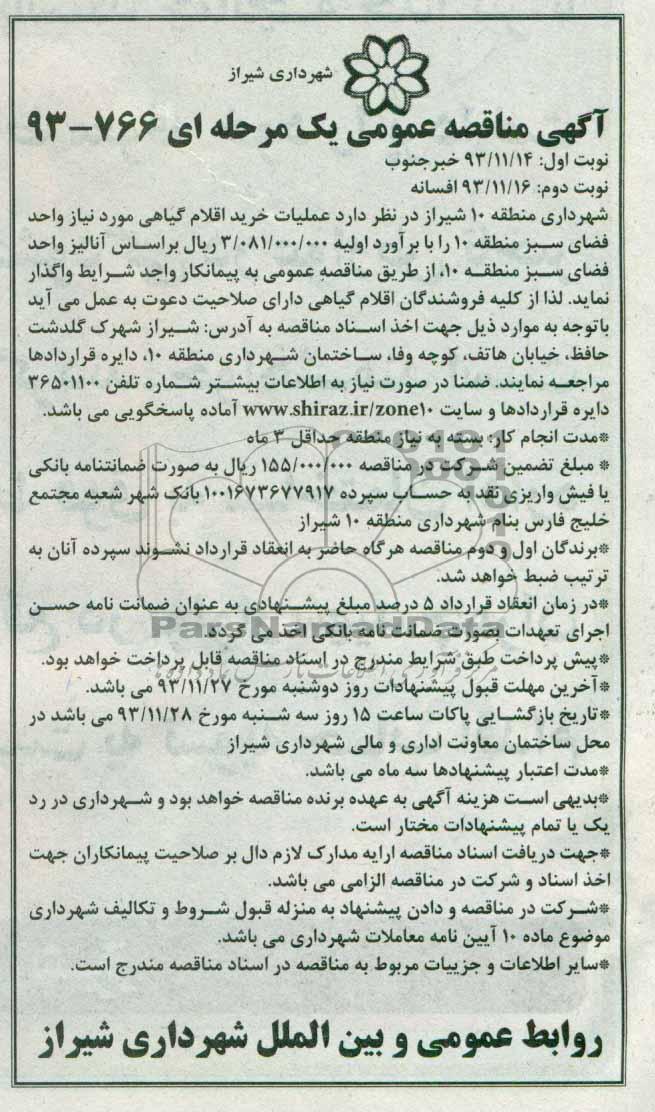 شهرداری شیراز
آگهی مناقصه عمومی یک مرحله ای ۷۶۶-۹۳
نوبت اول: ۹۳/۱۱/۱۴ خبرجنوب
نوبت دوم: ۹۳/۱۱/۱۶ افسانه
شهرداری منطقه ۱۰ شیراز در نظر دارد عملیات خرید اقلام گیاهی مورد نیاز واحد
فضای سبز منطقه ۱۰ را با برآورد اولیه ۳/۰۸۱/۰۰۰/۰۰۰ ریال براساس آنالیز واحد
فضای سبز منطقه ۱۰، از طریق مناقصه عمومی به پیمانکار واجد شرایط واگذار
نماید. لذا از کلیه فروشندگان اقلام گیاهی دارای صلاحیت دعوت به عمل می آید
باتوجه به موارد ذیل جهت اخذ اسناد مناقصه به آدرس: شیراز شهرک گلدشت
حافظ، خیابان هاتف، کوچه وفا، ساختمان شهرداری منطقه ۱۰، دایره قراردادها
مراجعه نمایند. ضمنا در صورت نیاز به اطلاعات بیشتر شماره تلفن ۳۶۵۰۱۱۰۰
دایره قراردادها و سایت www.shiraz.ir/zone۱۰ آماده پاسخگویی می باشد.
*مدت انجام کار: بسته به نیاز منطقه حداقل ۳ ماه
* مبلغ تضمین شرکت در مناقصه ۱۵۵/۰۰۰/۰۰۰ ریال به صورت ضمانتنامه بانکی
یا فیش واریزی نقد به حساب سپرده ۱۰۰۱۶۷۳۶۷۷۹۱۷ بانک شهر شعبه مجتمع
خلیج فارس بنام شهرداری منطقه ۱۰ شیراز
*برندگان اول و دوم مناقصه هرگاه حاضر به انعقاد قرارداد نشوند سپرده آنان به
ترتیب ضبط خواهد شد.
*در زمان انعقاد قرارداد ۵ درصد مبلغ پیشنهادی به عنوان ضمانت نامه حسن
اجرای تعهدات بصورت ضمانت نامه بانکی اخذ می گردد.
*پیش پرداخت طبق شرایط مندرج در اسناد مناقصه قابل پرداخت خواهد بود.
*آخرین مهلت قبول پیشنهادات روز دوشنبه مورخ ۹۳/۱۱/۲۷ می باشد.
*تاریخ بازگشایی پاکات ساعت ۱۵ روز سه شنبه مورخ ۹۳/۱۱/۲۸ می باشد در
محل ساختمان معاونت اداری و مالی شهرداری شیراز
*مدت اعتبار پیشنهادها سه ماه می باشد.
*بدیهی است هزینه آگهی به عهده برنده مناقصه خواهد بود و شهرداری در رد
یک یا تمام پیشنهادات مختار است.
*جهت دریافت اسناد مناقصه ارایه مدارک لازم دال بر صلاحیت پیمانکاران جهت
اخذ اسناد و شرکت در مناقصه الزامی می باشد.
*شرکت در مناقصه و دادن پیشنهاد به منزله قبول شروط و تکالیف شهرداری
موضوع ماده ۱۰ آیین نامه معاملات شهرداری می باشد.
*سایر اطلاعات و جزییات مربوط به مناقصه در اسناد مناقصه مندرج است.
روابط عمومی و بین الملل شهرداری شیراز
ParsNamadData